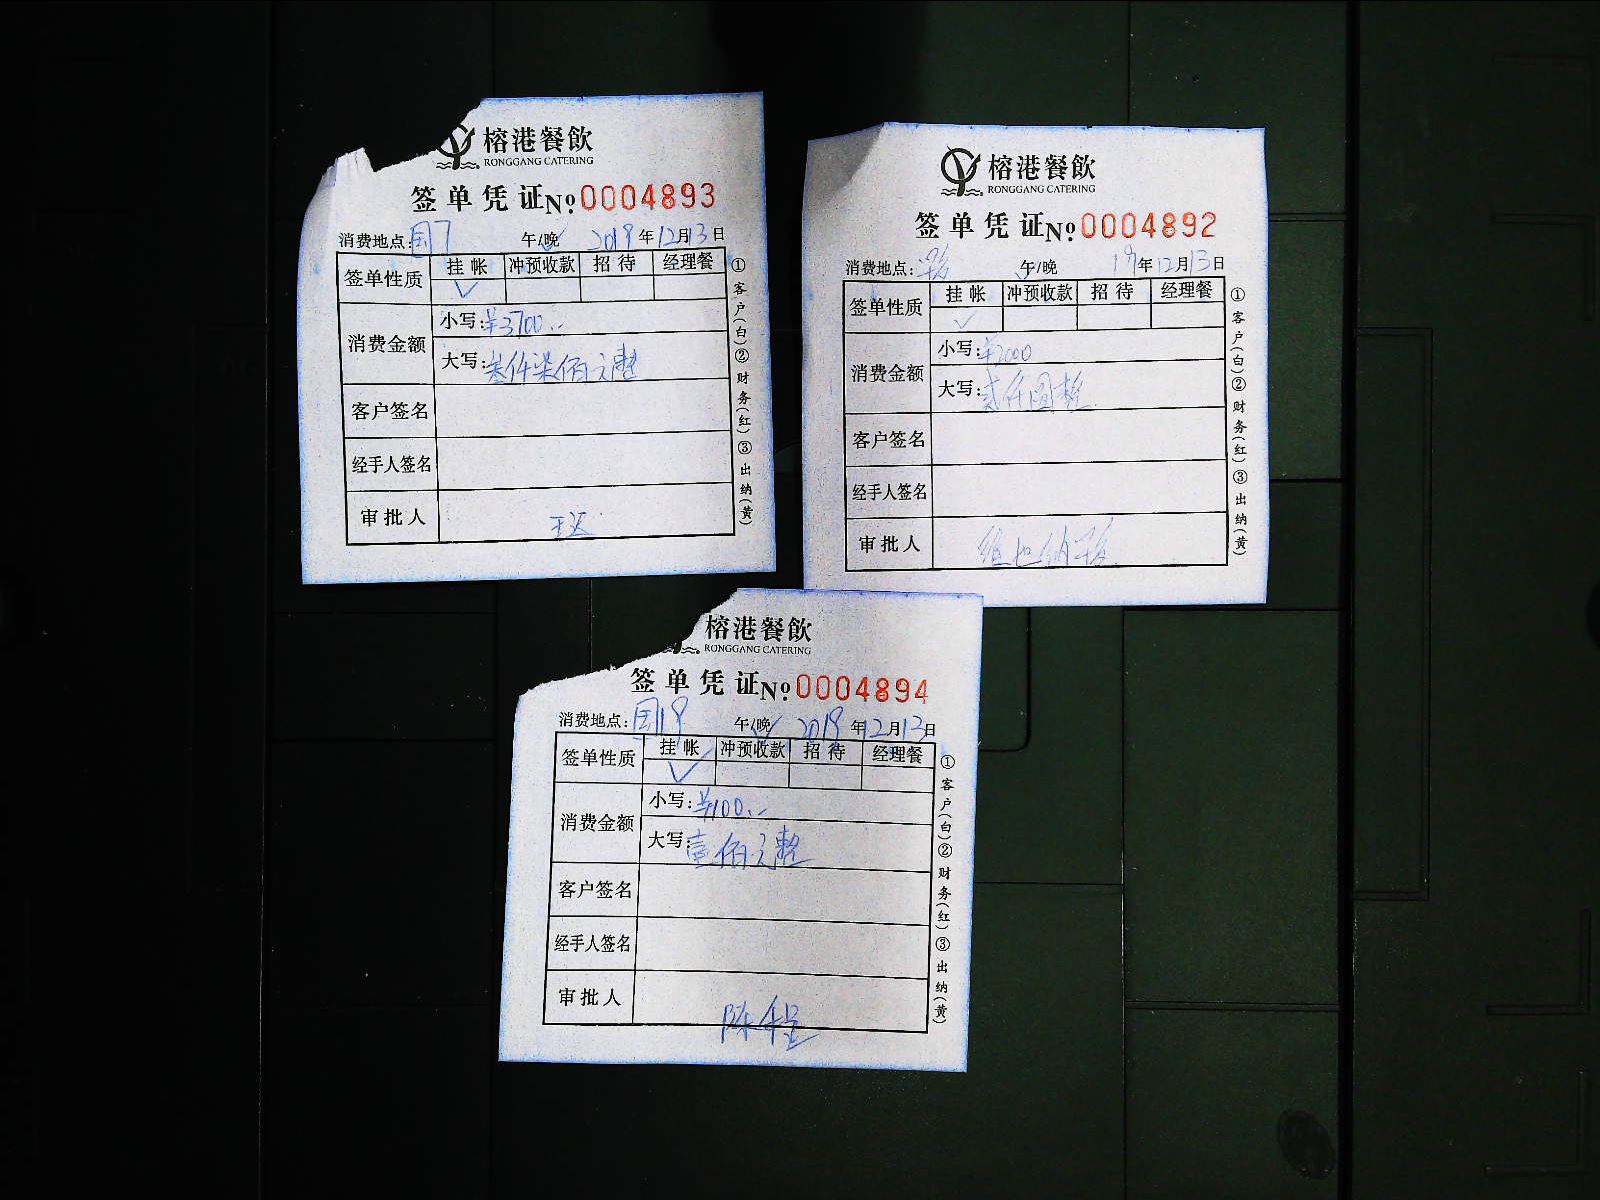 榕港餐飲
RONGGANG CATERING
签单凭证 No. 0004893
消费地点: 国7 午/晚 2019年12月13日
签单性质 挂帐 冲预收款 招待 经理餐
✓
消费金额 小写: ¥3700.--
大写: 叁仟柒佰元整
客户签名
经手人签名
审批人
①客户(白)②财务(红)③出纳(黄)
榕港餐飲
RONGGANG CATERING
签单凭证 No. 0004892
消费地点: 午/晚 19年12月13日
签单性质 挂帐 冲预收款 招待 经理餐
✓
消费金额 小写: ¥2000
大写: 贰仟圆整
客户签名
经手人签名
审批人 维也纳
①客户(白)②财务(红)③出纳(黄)
榕港餐飲
RONGGANG CATERING
签单凭证 No. 0004894
消费地点: 国19 午/晚 2019年12月13日
签单性质 挂帐 冲预收款 招待 经理餐
✓
消费金额 小写: ¥100.--
大写: 壹佰元整
客户签名
经手人签名
审批人 陈
①客户(白)②财务(红)③出纳(黄)